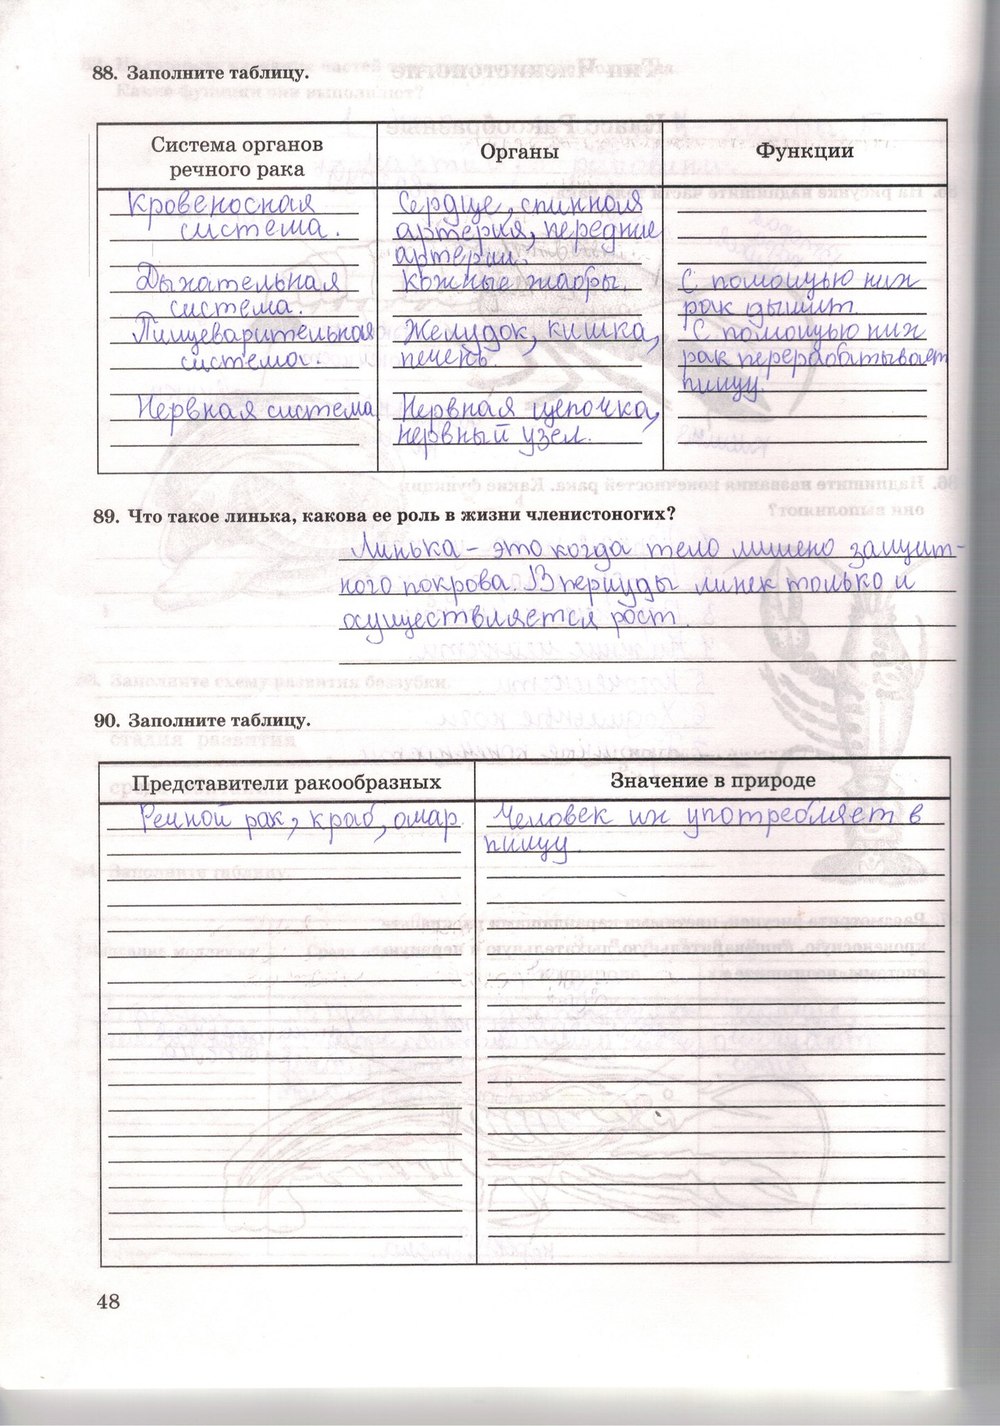 88. Заполните таблицу.
Система органов речного рака
Органы
Функции
Кровеносная
система.
Сердце, спинная
артерия, передние
артерии.
Дыхательная
система.
Кожные жабры.
С помощью них
рак дышит.
Пищеварительная
система.
Желудок, кишка,
печень.
С помощью них
рак перерабатывает
пищу.
Нервная система
Нервная цепочка,
нервный узел.
89. Что такое линька, какова ее роль в жизни членистоногих?
Линька – это когда тело лишено защит-
ного покрова. В периуды линек только и
осуществляется рост.
90. Заполните таблицу.
Представители ракообразных
Значение в природе
Речной рак, краб, омар.
Человек их употребляет в
пищу.
48